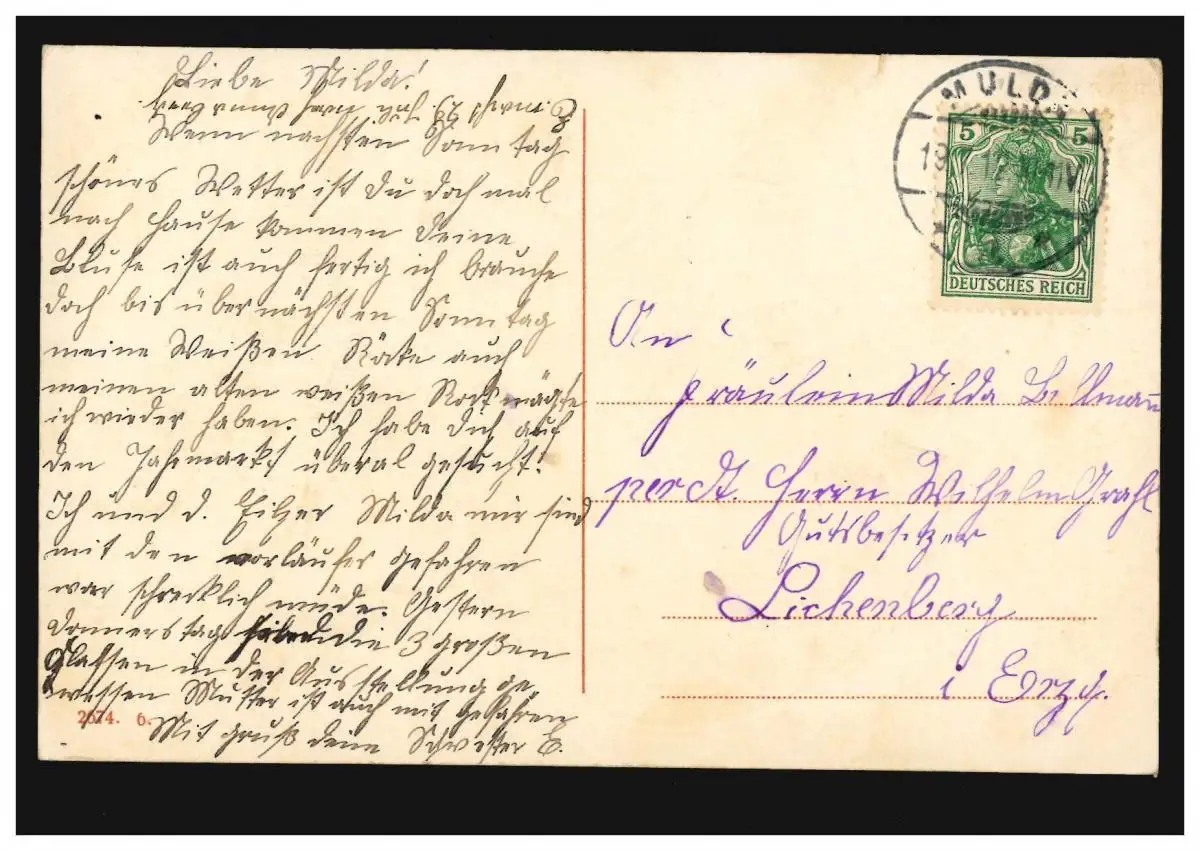 Liebe Milda!
Wenn nächsten Sonntag
schönes Wetter ist Du doch mal
nach Hause kommen Deine
Bluse ist auch fertig ich brauche
doch bis übernächsten Sonntag
meine Weißen Röcke auch
meinen alten weißen Rock mägte
ich wieder haben. Ich habe Dich auf
den Jahrmarkt überal gesucht!
Ich und d. Milda mir sind
mit den vorläufer gefahren
war schrecklich müde. Gestern
Donnerstag die 3 großen
Klassen in der Ausstellung ge
wessen Mutter ist auch mit gefahren
Mit gruß deine Schwester E.
2674. 6.
MULD
5 5
DEUTSCHES REICH
An
Fräulein Milda Bellmann
per Ad. Herrn Wilhelm Grahl
Gutsbesitzer
Lichenberg
i Erzg.